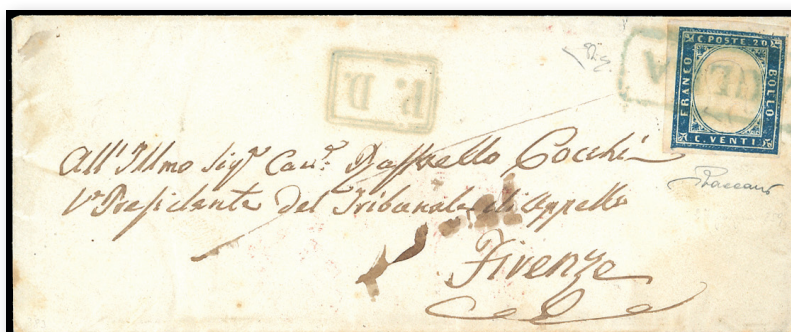 C. POSTE 20
FRANCO
BOLLO.
C. VENTI.
P. D.
All' Illmo Sigr Cavr Raffaello Cocchi
Vo Presidente Del Tribunale di Appello
Firenze